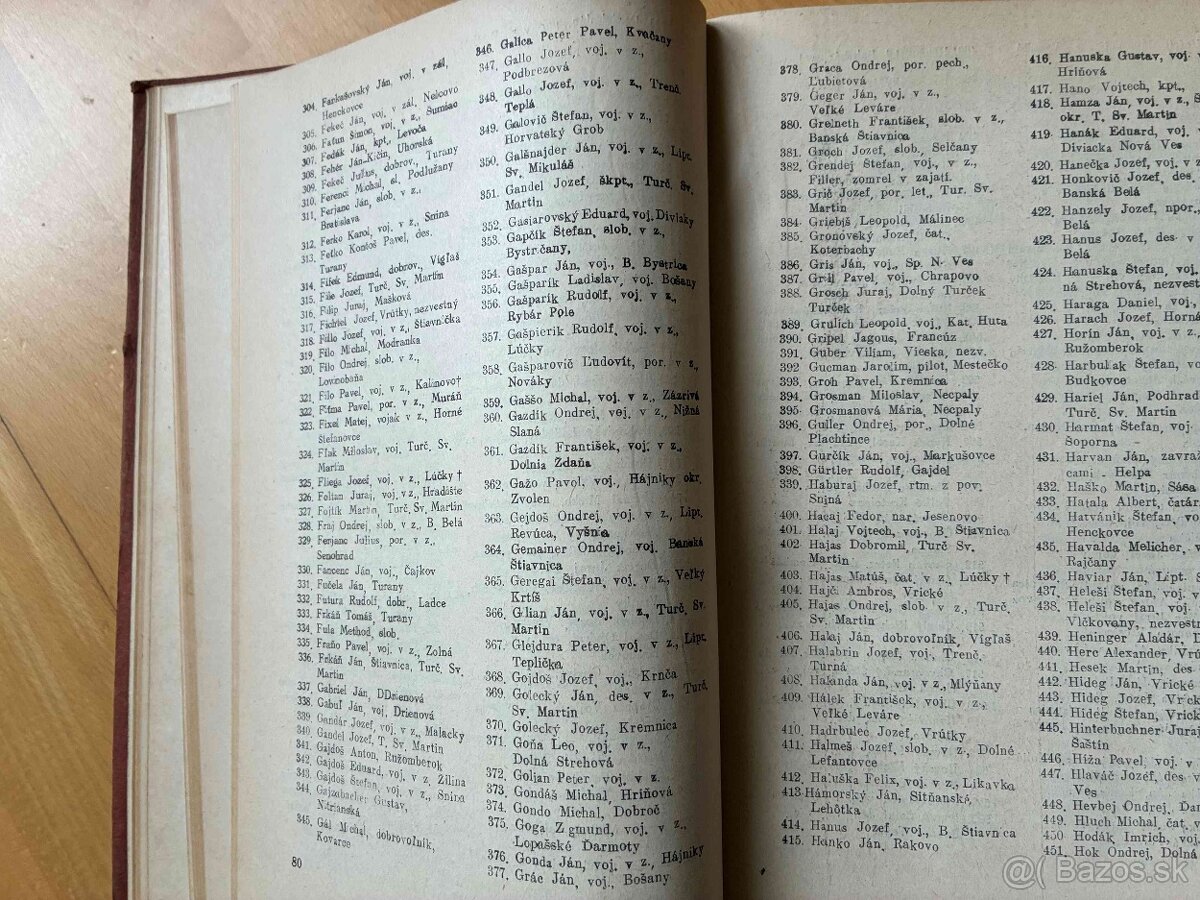 304. Farkašovský Ján, voj. v zál,
Henckovce
305. Fekeč Ján, voj, v zál, Nelcovo
306. Fatun Šimon, voj, v z., Šumiac
307. Fedák Ján, kpt., Levoča
308. Fehér Ján-Kičin, Uhorská
309. Fekeč Julius, dobrov., Turany
310. Ferenc Michal, sl, Podlužany
311. Ferjanc Ján, slob. v z.,
Bratislava
312. Ferko Karol, voj. v z., Snina
313. Feťko Kontoš Pavel, des.
Turany
314. Fifek Edmund, dobrov., Vígľaš
315. File Jozef, Turč, Sv. Martin
316. Filip Juraj, Mašková
317. Fichtel Jozef, Vrútky, nezvestný
318. Fillo Jozef, voj. v z., Štiavnička
319. Filo Michal, Modranka
320. Filo Ondrej, slob. v z.,
Lovinobaňa
321. Filo Pavel, voj. v z., Kalinovo†
322. Firma Pavel, por. v z., Muráň
323. Fixel Matej, vojak v z., Horné
Štefanovce
324. Flak Miloslav, voj, Turč. Sv.
Martin
325. Fliega Jozef, voj. v z., Lúčky †
326. Foltan Juraj, voj. v z., Hradište
327. Fojtík Martin, Turč, Sv, Martin
328. Fraj Ondrej, slob. v z., B, Belá
329. Ferjanc Julius, por. v z.,
Senohrad
330. Fancenc Ján, voj., Čajkov
331. Fučela Ján, Turany
332. Futura Rudolf, dobr., Ladce
333. Frkáň Tomáš, Turany
334. Fula Method, slob.
335. Fraňo Pavel, voj. v z., Zolná
336. Frkáň Ján, Štiavnica, Turč. Sv.
Martin
337. Gabriel Ján, DDrienová
338. Gabuľ Ján, voj, Drienová
339. Gandár Jozef, voj. v z., Malacky
340. Gandel Jozef, T. Sv. Martin
341. Gajdoš Anton, Rnžomberok
342. Gajdoš Eduard, voj. v z, Žilina
343. Gajdoš Štefan, voj. v z., Snina
344. Gajzabacher Gustav,
Nitrianská
345. Gál Michal, dobrovoľník,
Kovarce
80
346. Galica Peter Pavel, Kvačany
347. Gallo Jozef, voj. v z.,
Podbrezová
348. Gallo Jozef, voj. v z., Trenč.
Teplá
349. Galovič Štefan, voj. v z.,
Horvatský Grob
350. Galšnajder Ján, voj. v z., Lipt.
Sv. Mikuláš
351. Gandel Jozef, škpt., Turč, Sv.
Martin
352. Gasiarovský Eduard, voj. Diviaky
353. Gapčík Štefan, slob. v z.,
Bystrčany,
354. Gašpar Ján, voj., B. Bystrica
355. Gašparík Ladislav, voj. Bošany
356. Gašparík Rudolf, voj. v z.,
Rybár Pole
357. Gašpierik Rudolf, voj. v z.,
Lúčky
358. Gašparovič Ľudovít, por. v z.,
Nováky
359. Gaššo Michal, voj. v z., Zázrivá
360. Gazdík Ondrej, voj, v z., Nižná
Slaná
361. Gazdík František, voj. v z.,
Dolnia Ždaňa
362. Gažo Pavol, voj., Hájniky okr.
Zvolen
363. Gejdoš Ondrej, voj. v z., Lipt.
Revúca, Vyšnia
364. Gemainer Ondrej, voj. Banská
Štiavnica
365. Geregai Štefan, voj. v z., Veľký
Krtíš
366. Gilian Ján, voj. v z., Turč. Sv.
Martin
367. Glejdura Peter, voj. v z., Lipt.
Teplička
368. Gojdoš Jozef, voj., Krnča
369. Golecký Ján, des v z., Turč.
Sv. Martin
370. Golecký Jozef, Kremnica
371. Goňa Leo, voj. v z.,
Dolná Strehová
372. Golian Peter, voj. v z.
373. Gondáš Michal, Hriňová
374. Gondo Michal, Dobroč
375. Goga Z gmund, voj. v z.,
Lopašské Ďarmoty
376. Gonda Ján, voj. v z., Hájniky
377. Grác Ján, voj., Bošany
378. Graca Ondrej, por. pech.,
Ľubietová
379. Geger Ján, voj. v z.,
Veľké Leváre
380. Grelneth František, slob. v z.,
Banská Štiavnica
381. Groch Jozef, slob., Selčany
382. Grendej Štefan, voj. v z.,
Filier, zomrel v zajatí.
383. Gríč Jozef, por. let., Tur. Sv.
Martin
384. Griebiš Leopold, Málinec
385. Gronovský Jozef, čat.,
Koterbachy
386. Gris Ján, voj., Sp. N. Ves
387. Gríl Pavel, voj., Chrapovo
388. Grosch Juraj, Dolný Turček
Turček
389. Grulich Leopold, voj., Kat. Huta
390. Gripel Jagous, Francúz
391. Guber Viliam, Vieska, nezv.
392 Gucman Jarolím, pilot, Mestečko
393. Groh Pavel, Kremnica
394. Grosman Miloslav, Necpaly
395. Grosmanová Mária, Necpaly
396. Guller Ondrej, por., Dolné
Plachtince
397. Gurčík Ján, voj., Markušovce
398. Gürtler Rudolf, Gajdel
339. Haburaj Jozef, rtm. z pov.
Sniná
400. Hacaj Fedor, nar. Jesenovo
401. Halaj Vojtech, voj., B. Štiavnica
402. Hajas Dobromil, Turč Sv.
Martin
403. Hajas Matúš, čat. v z., Lúčky †
404. Hajč. Ambros, Vrické
405. Hajas Ondrej, slob v z., Turč.
Sv. Martin
406. Halaj Ján, dobrovoľník, Vígľaš
407. Halabrín Jozef, voj., Trenč.
Turná
408. Halanda Ján, voj. v z., Mlýňany
409. Hálek František, voj. v z.,
Veľké Leváre
410. Hadrbulec Jozef, Vrútky
411. Halmeš Jozef, slob. v z., Dolné
Lefantovce
412. Haluška Felix, voj. v z., Likavka
413. Hámorský Ján, Sitňanská
Lehôtka
414. Hanus Jozef, voj., B. Štiavnica
415. Hanko Ján, Rakovo
416. Hanuska Gustav, voj.
Hriňová
417. Hano Vojtech, kpt.,
418. Hamza Ján, voj. v
okr. T. Sv. Martin
419. Hanák Eduard, voj.
Diviacka Nová Ves
420. Hanečka Jozef, voj.
421. Honkovič Jozef, des
Banská Belá
422. Hanzely Jozef, npor.
Belá
423. Hanus Jozef, des v
Belá
424. Hanuska Štefan, voj.
ná Strehová, nezvest
425. Haraga Daniel, voj.,
426. Harach Jozef, Horná
427. Horín Ján, voj. v z.
Ružomberok
428. Harbuľak Štefan, voj.
Budkovce
429. Hariel Ján, Podhrad
Turč. Sv. Martin
430. Harmat Štefan, voj.
Šoporna
431. Harvan Ján, zavraž
cami - Helpa
432. Haško Martin, Sása
433. Hatala Albert, čatár
434. Hatváník Štefan, voj.
Henckovce
435. Havalda Melicher, voj.
Rajčany
436. Haviar Ján, Lipt.
437. Heleši Štefan, voj.
438. Heleši Štefan, voj.
Vlčkovany, nezvest
439. Heninger Aladár,
440. Herc Alexander, Vrú
441. Hesek Martin, des
442. Hideg Ján, Vrické
443. Hideg Jozef, Vrické
444. Hideg Štefan, Vrické
445. Hinterbuchner Juraj
Šaštín
446. Hiža Pavel, voj. v
447. Hlaváč Jozef, des v
Ves
448. Hevbej Ondrej, Ďa
449. Hluch Michal, čat.
450. Hodák Imrich, voj.
451. Hok Ondrej, Dolná
@Bazos.sk